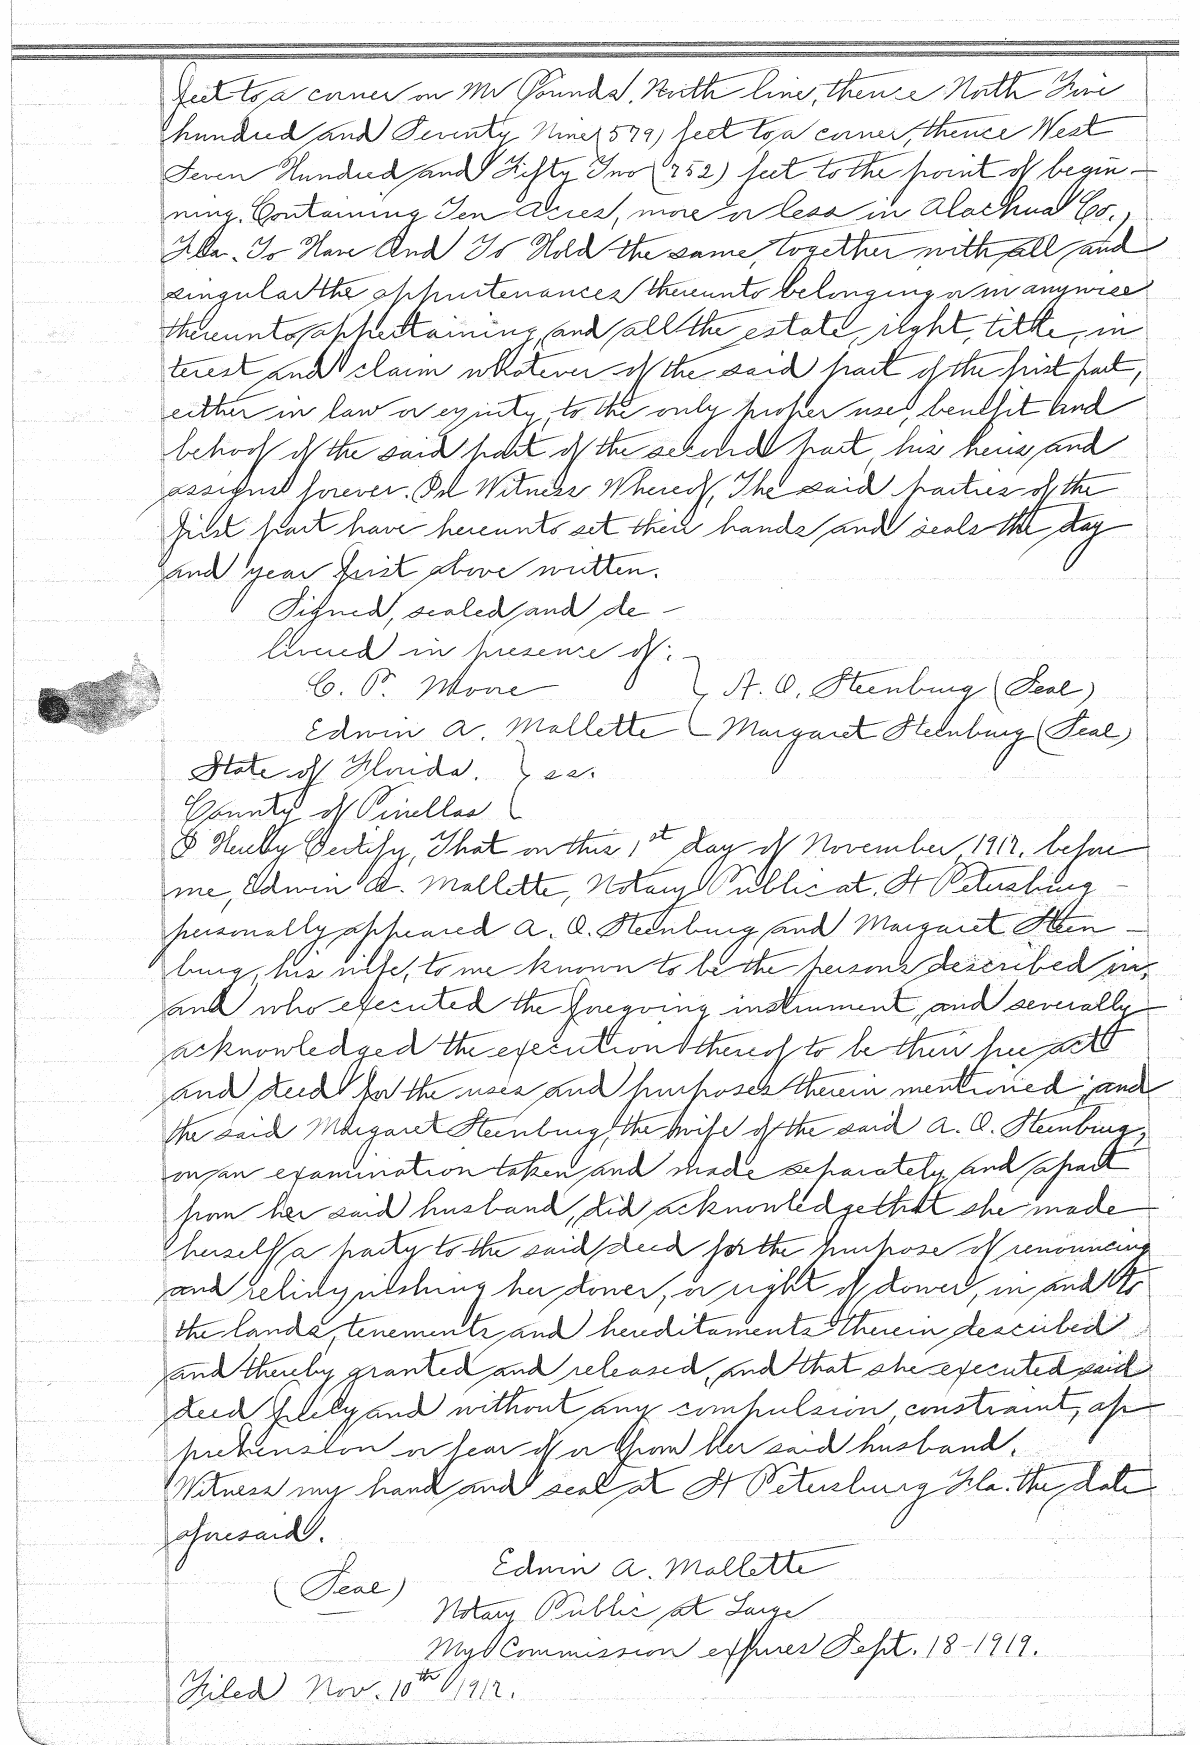 feet to a corner on Mr Pounds, North line, thence North Five
hundred and Seventy Nine (579) feet to a corner, thence West
Seven Hundred and Fifty Two (752) feet to the point of begin-
ning. Containing Ten Acres, more or less in Alachua Co.,
Fla. To Have And To Hold the same, together with all and
singular the appurtenances thereunto belonging or in anywise
thereunto appertaining, and all the estate, right, title, in
terest and claim whatever of the said part of the first part,
either in law or equity, to the only proper use, benefit and
behoof of the said part of the second part, his heirs and
assigns forever. In Witness Whereof, The said parties of the
first part have hereunto set their hands and seals the day
and year first above written.
Signed, sealed and de-
livered in presence of:
C. P. Moore } A. O. Steenburg (Seal)
Edwin A. Mallette Margaret Steenburg (Seal)
State of Florida. } ss.
County of Pinellas
I Hereby Certify, That on this 1st day of November, 1917. before
me, Edwin A. Mallette, Notary Public at. St Petersburg -
personally appeared A. O. Steenburg and Margaret Steen-
burg, his wife, to me known to be the persons described in,
and who executed the foregoing instrument, and severally
acknowledged the execution thereof to be their free act
and deed for the uses and purposes therein mentioned; and
the said Margaret Steenburg, the wife of the said A. O. Steenburg,
on an examination taken and made separately and apart
from her said husband, did acknowledge that she made
herself a party to the said deed for the purpose of renouncing
and relinquishing her dower, or right of dower, in and to
the lands, tenements and hereditaments therein described
and thereby granted and released, and that she executed said
deed freely and without any compulsion, constraint, ap
prehension or fear of or from her said husband.
Witness my hand and seal at St Petersburg Fla. the date
aforesaid.
Edwin A. Mallette
(Seal)
Notary Public at Large
My Commission expires Sept. 18-1919.
Filed Nov. 10th 1917.